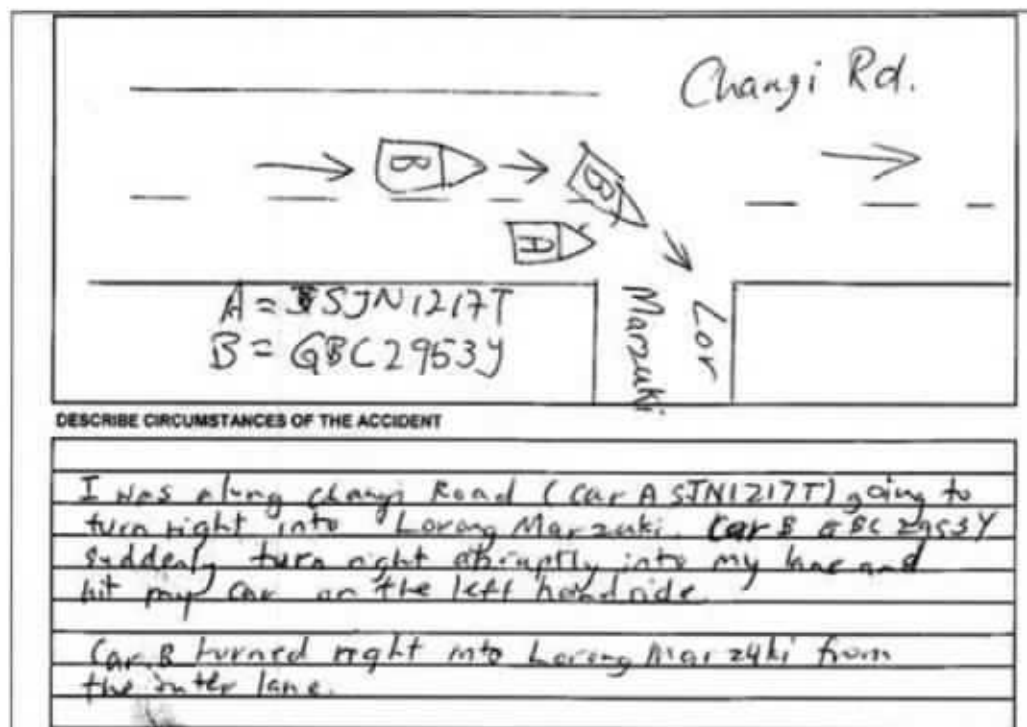 Changi Rd.
B
B
A
A = SJN1217T
B = GBC2953Y
Lor
Marzuki
DESCRIBE CIRCUMSTANCES OF THE ACCIDENT
I was along changi Road (Car A SJN1217T) going to
turn right into Lorong Marzuki. Car B GBC 2953Y
suddenly turn right abruptly into my lane and
hit my car on the left
Car B turned right into Lorong Marzuki from
the lane.